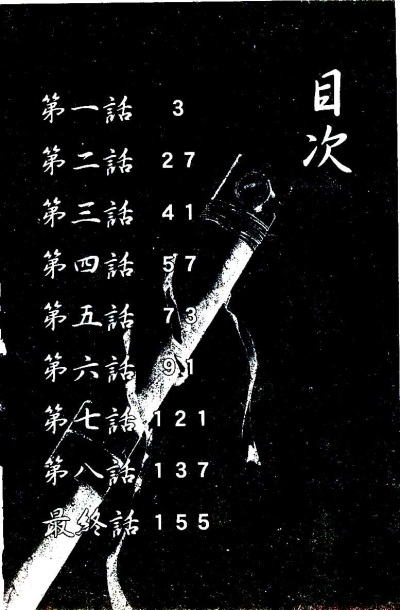 目次
第一話 3
第二話 27
第三話 41
第四話 57
第五話 73
第六話 91
第七話 121
第八話 137
最終話 155